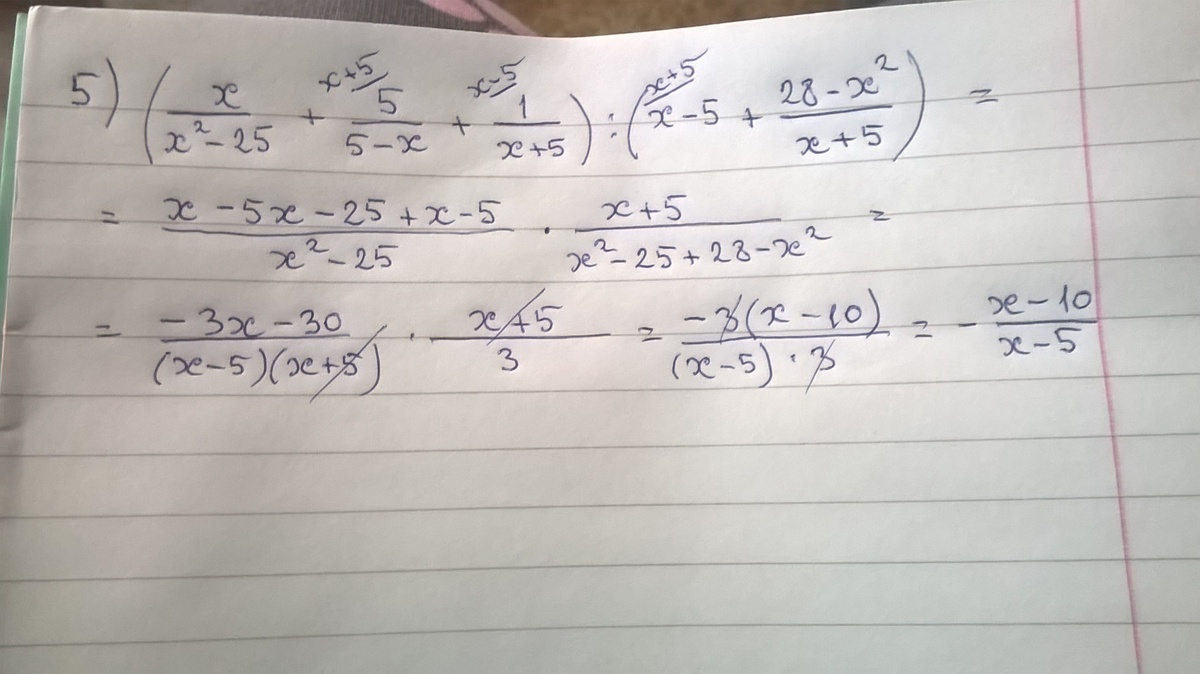 5) (x/(x²-25) + x+5 5/(5-x) + x-5 1/(x+5)) : (x+5 x-5 + (28-x²)/(x+5)) =
= (x-5x-25+x-5)/(x²-25) · (x+5)/(x²-25+28-x²) =
= (-3x-30)/((x-5)(x+5)) · (x+5)/3 = (-3(x-10))/((x-5)·3) = -(x-10)/(x-5)